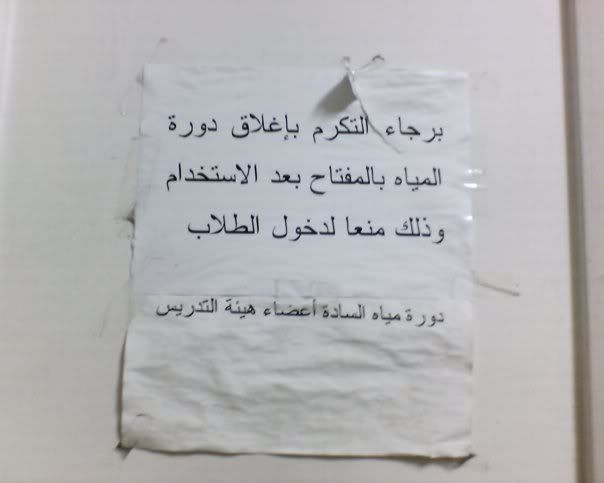 برجاء التكرم بإغلاق دورة
المياه بالمفتاح بعد الاستخدام
وذلك منعا لدخول الطلاب
دورة مياه السادة أعضاء هيئة التدريس